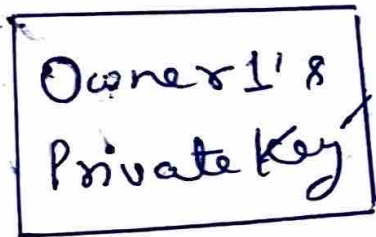 Owner 1's
Private Key